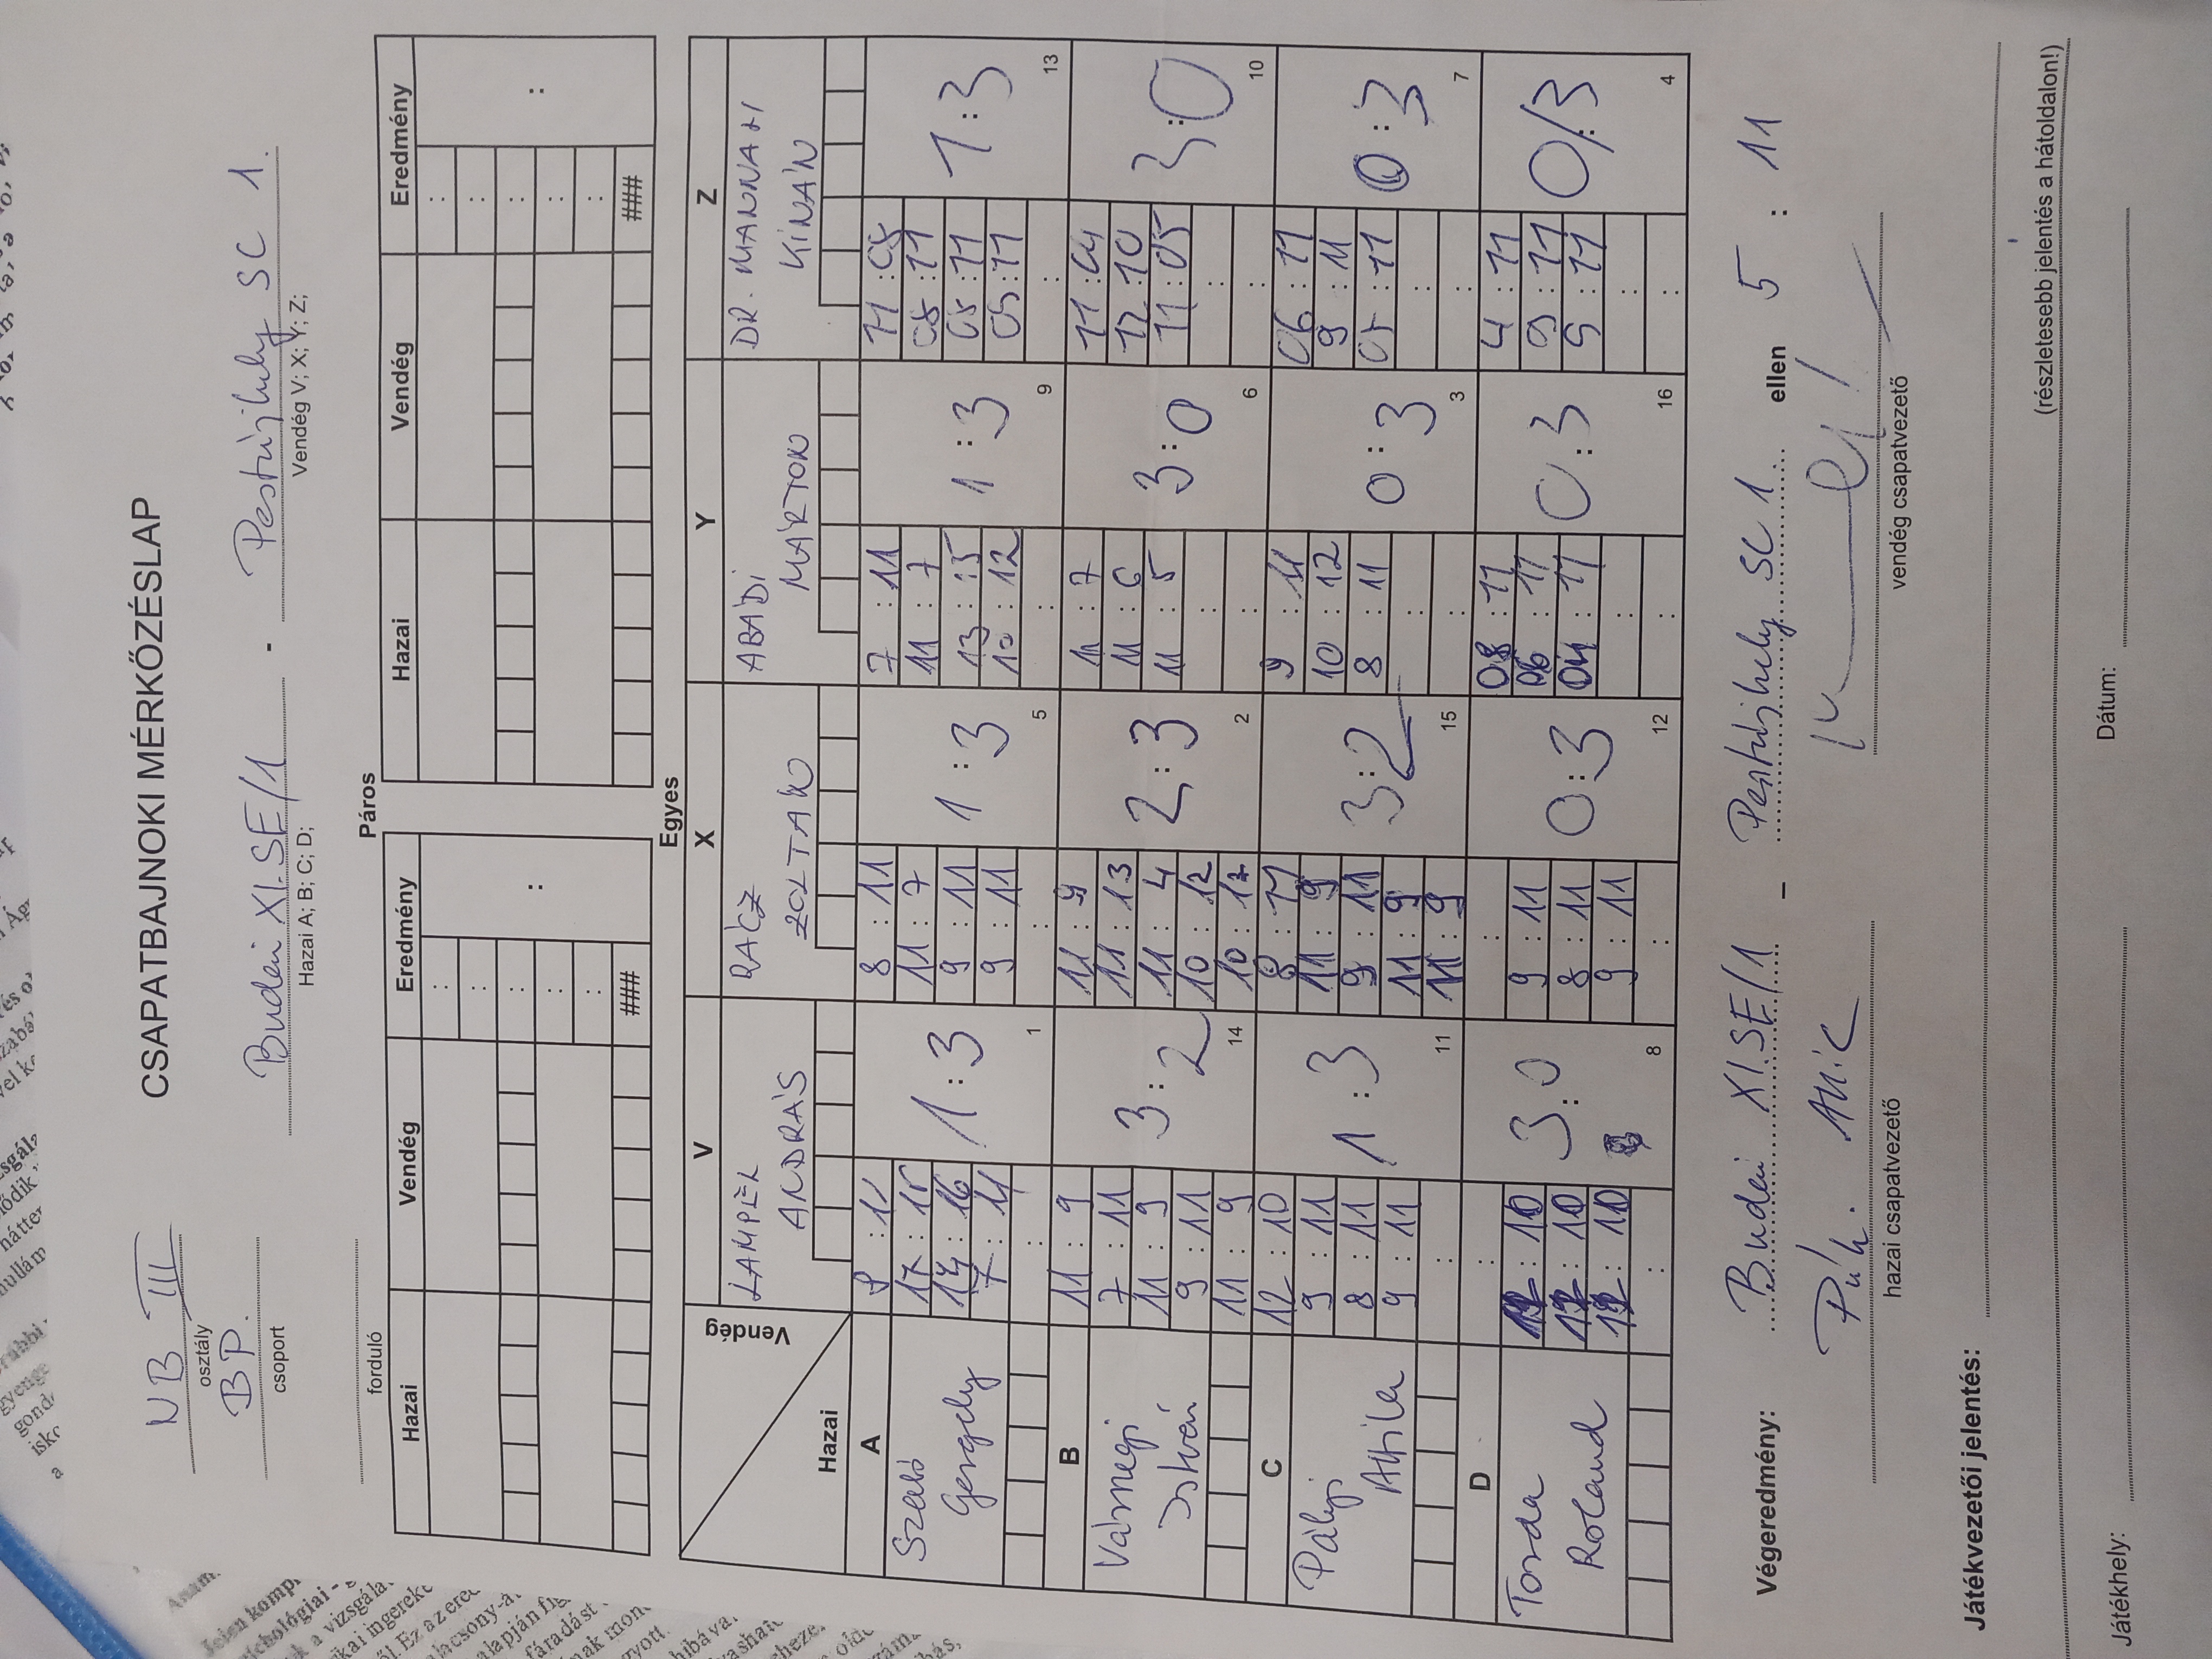 CSAPATBAJNOKI MÉRKŐZÉSLAP
NB III
osztály
BP.
csoport
forduló
Budai XI.SE/1 - Pestújhely SC 1.
Hazai A; B; C; D; Vendég V; X; Y; Z;
Páros
Hazai Vendég Eredmény Hazai Vendég Eredmény
: :
: :
: : : :
: :
: :
### ###
Egyes
Vendég
Hazai
V X Y Z
LAMPEL ANDRÁS
RÁCZ ZOLTÁN
ABÁDI MÁRTON
DR. MANNAHI KINÁN
A
Szabó Gergely
9 : 11
17 : 15
14 : 16
7 : 11
:
1 : 3
1
8 : 11
11 : 7
9 : 11
9 : 11
:
1 : 3
5
7 : 11
11 : 7
13 : 15
10 : 12
:
1 : 3
9
11 : 08
08 : 11
08 : 11
09 : 11
:
1 : 3
13
B
Vámegi István
11 : 9
7 : 11
11 : 9
9 : 11
11 : 9
3 : 2
14
11 : 9
11 : 13
11 : 4
10 : 12
10 : 12
2 : 3
2
11 : 7
11 : 6
11 : 5
:
:
3 : 0
6
11 : 04
12 : 10
11 : 05
:
:
3 : 0
10
C
Pályi Attila
12 : 10
9 : 11
8 : 11
9 : 11
:
1 : 3
11
8 : 11
11 : 9
9 : 11
11 : 9
11 : 9
3 : 2
15
9 : 11
10 : 12
8 : 11
:
:
0 : 3
3
06 : 11
9 : 11
07 : 11
:
:
0 : 3
7
D
Torda Roland
12 : 10
12 : 10
12 : 10
:
3 : 0
8
:
9 : 11
8 : 11
9 : 11
:
0 : 3
12
08 : 11
06 : 11
04 : 11
:
:
0 : 3
16
4 : 11
9 : 11
5 : 11
:
:
0/3
4
Végeredmény: Budai XI.SE/1 – Pestújhely SC 1 ellen 5 : 11
hazai csapatvezető vendég csapatvezető
Játékvezetői jelentés:
(részletesebb jelentés a hátoldalon!)
Játékhely: Dátum: